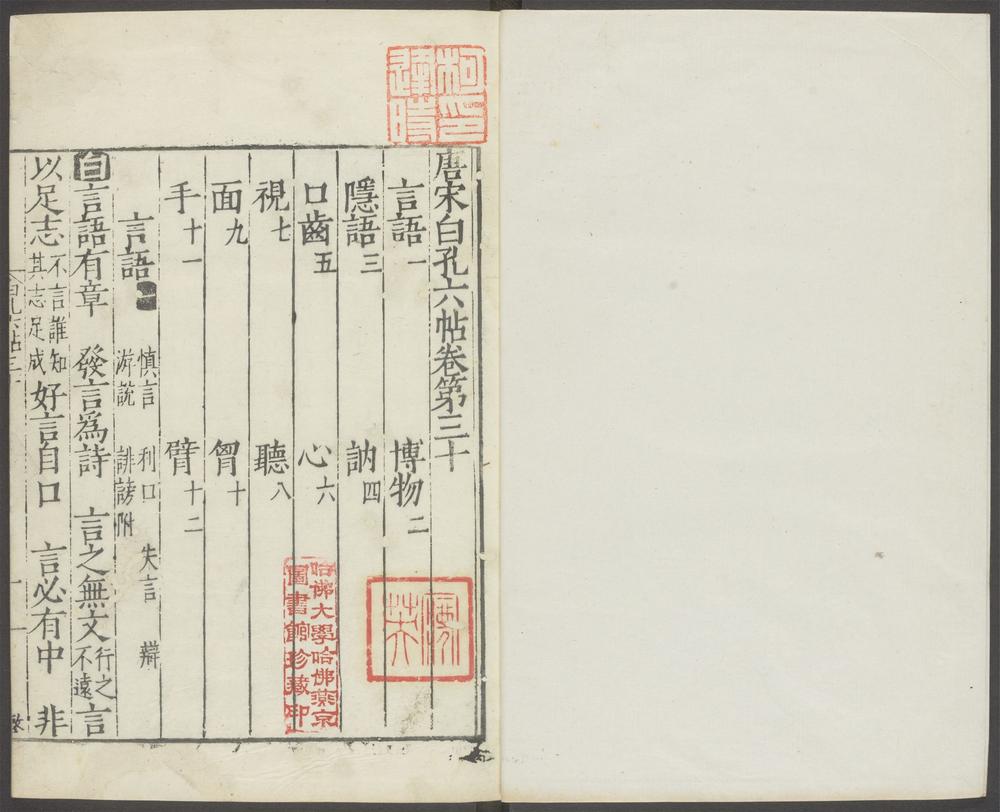 唐宋白孔六帖卷第三十
言語一 博物二
隱語三 訥四
口齒五 心六
視七 聽八
面九 胷十
手十一 臂十二
言語一 慎言 利口 失言 辯 游說 誹謗附
白言語有章 發言爲詩 言之無文行之不遠言
以足志不言誰知其志足成好言自口 言必有中 非
柯逢時印
哈佛大學哈佛燕京
圖書館珍藏印